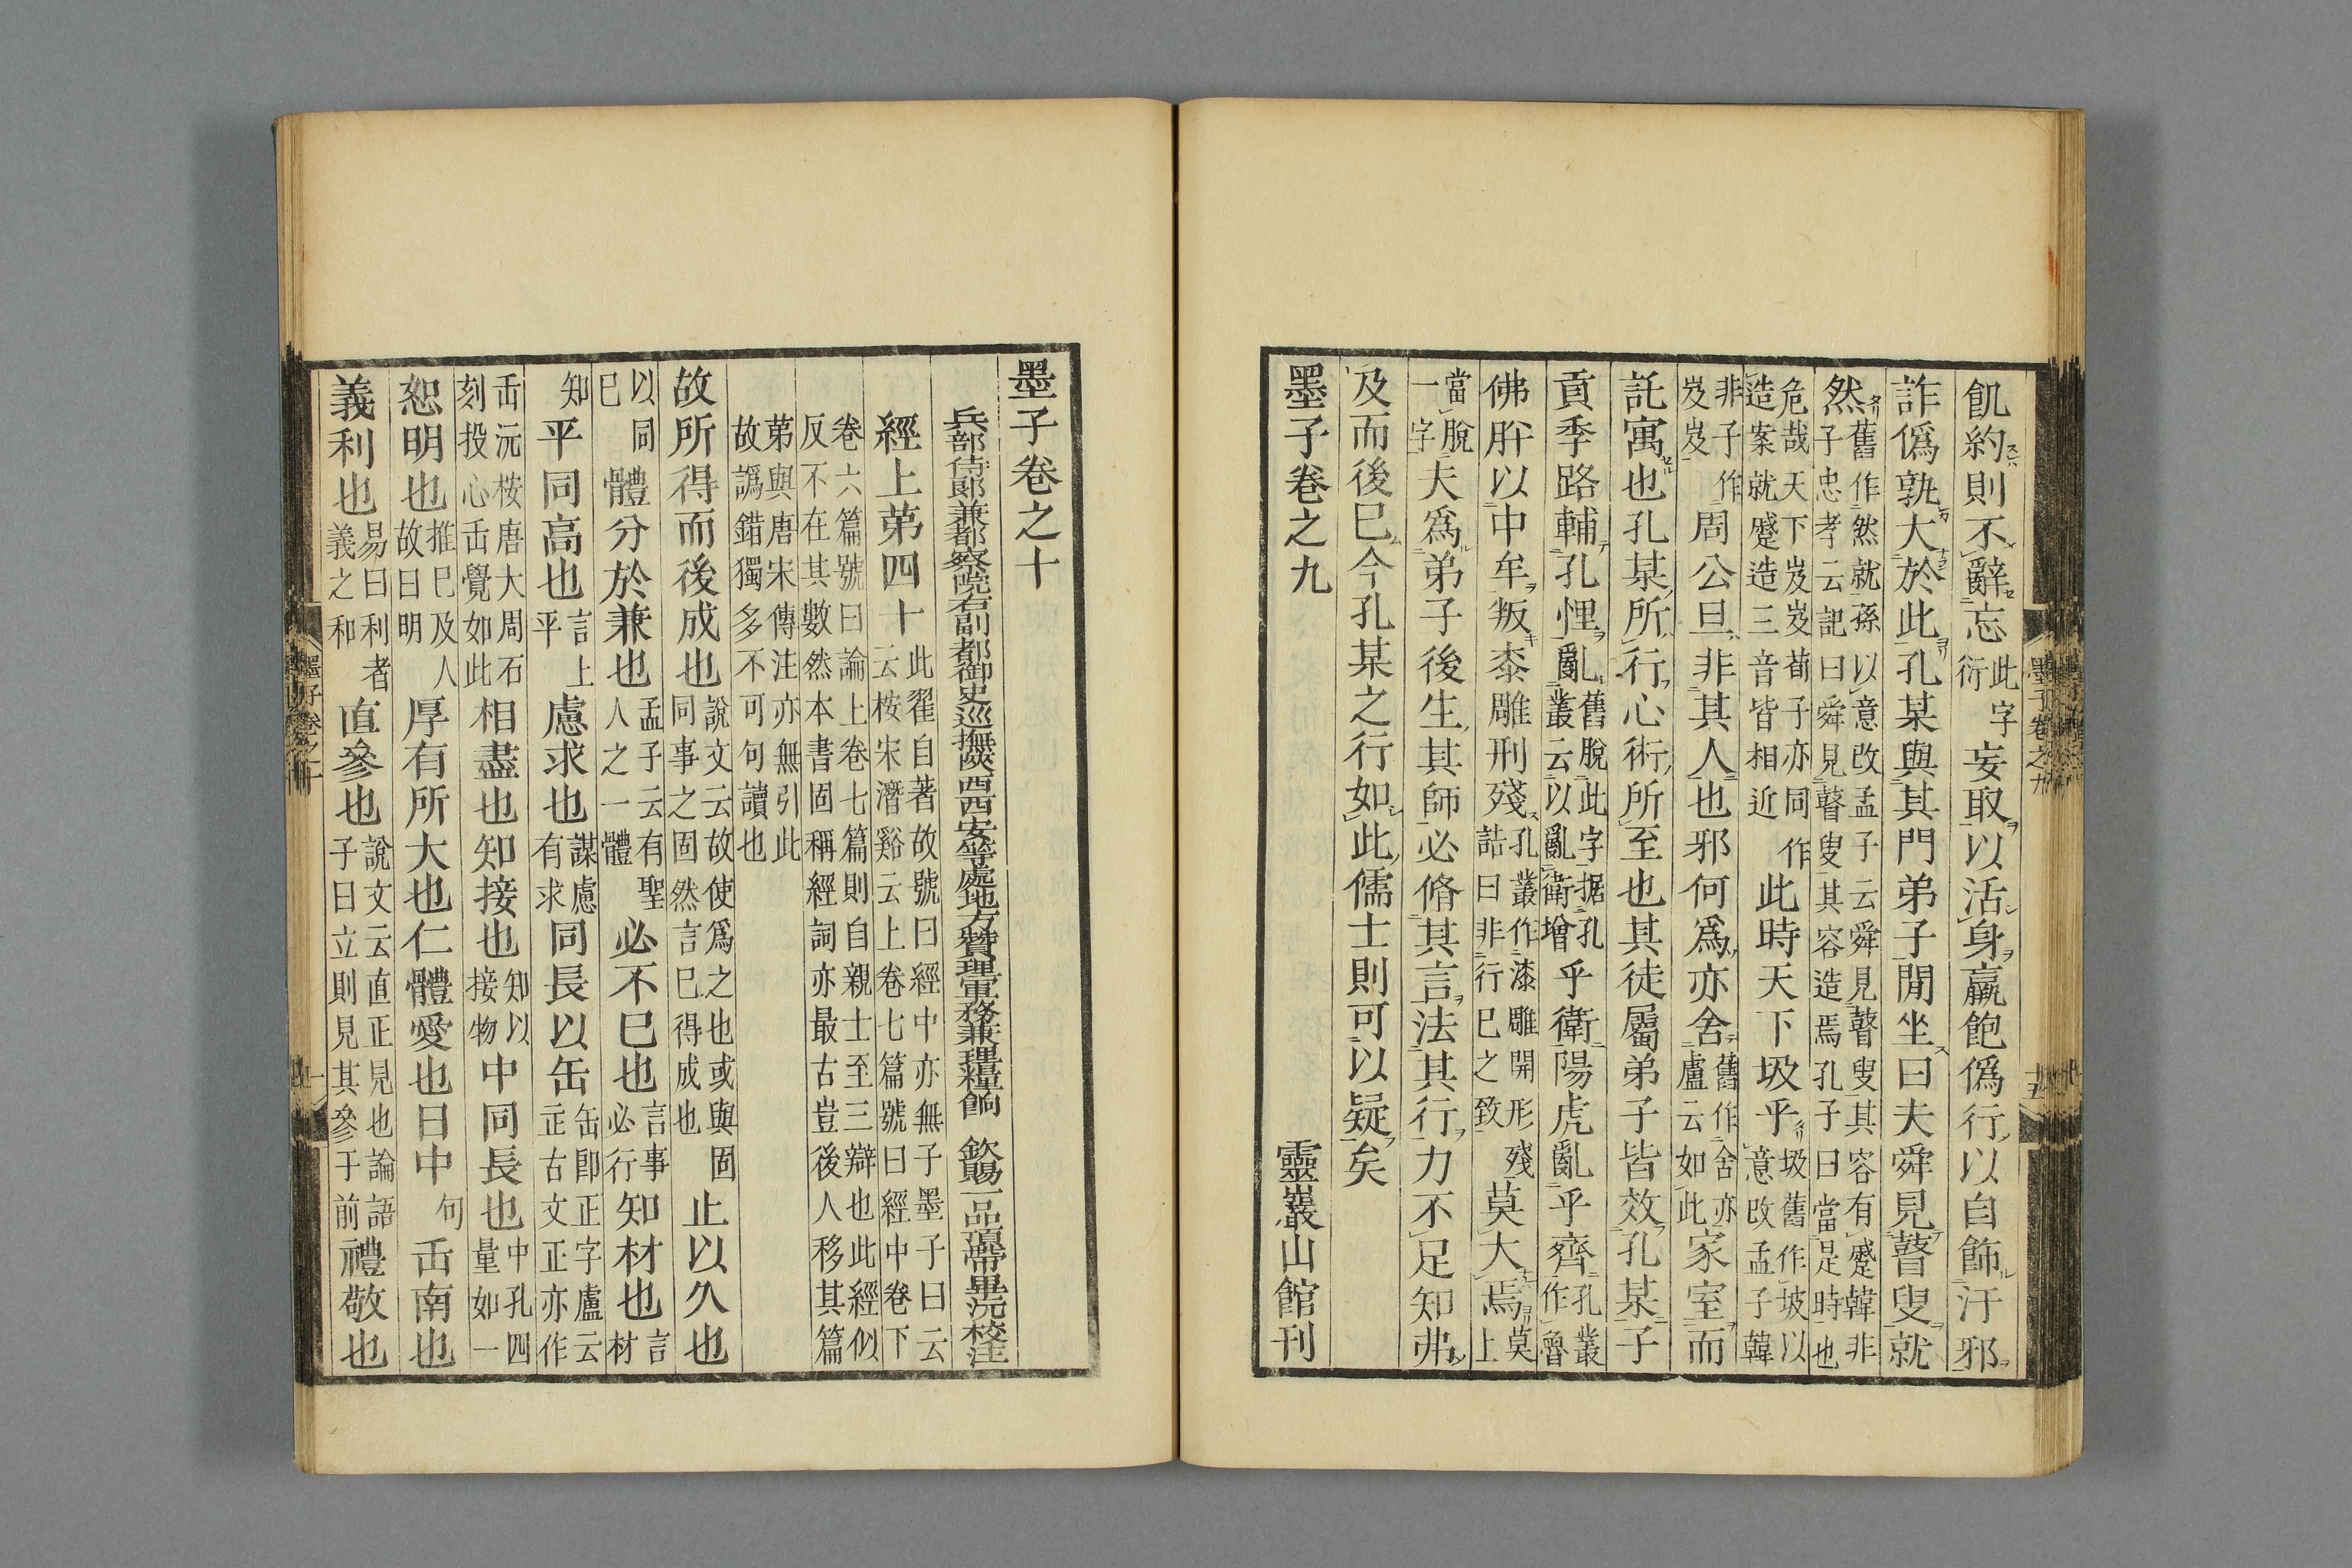 飢約則不辭忘此字衍妄取以活身贏飽僞行以自飾汙邪
詐僞孰大於此孔某與其門弟子閒坐曰夫舜見瞽叟就
然舊作然就孫以意改孟子云舜見瞽叟其容有蹙韓非子忠孝云記曰舜見瞽叟其容造焉孔子曰當是時也
危哉天下岌岌荀子亦同作造案就蹙造三音皆相近此時天下圾乎圾舊作坡以意改孟子韓
非子作岌岌周公旦非其人也邪何爲亦舍舊作舍亦盧云如此家室而
託寓也孔某所行心術所至也其徒屬弟子皆效孔某子
貢季路輔孔悝亂舊脫此字据孔叢云以亂衛增乎衛陽虎亂乎齊孔叢作魯
佛肸以中牟叛桼雕刑殘孔叢作漆雕開形殘詰曰非行已之致莫大焉莫上
當脫一字夫爲弟子後生其師必脩其言法其行力不足知弗
及而後已今孔某之行如此儒士則可以疑矣
墨子卷之九 靈巖山館刊
墨子卷之十
兵部侍郎兼都察院右副都御史巡撫陝西西安等處地方贊理軍務兼理糧餉 欽賜一品頂帶畢沅校注
經上第四十此翟自著故號曰經中亦無子墨子曰云云桉宋潛谿云上卷七篇號曰經中卷下
卷六篇號曰論上卷七篇則自親士至三辯也此經似反不在其數然本書固稱經詞亦最古豈後人移其篇
第與唐宋傳注亦無引此故譌錯獨多不可句讀也
故所得而後成也說文云故使爲之也或與固同事之固然言巳得成也止以久也
以同巳體分於兼也孟子云有聖人之一體必不巳也言事必行知材也言材
知平同高也言上平慮求也謀慮有求同長以缶缶卽正字盧云正古文正亦作
缶沅桉唐大周石刻投心缶覺如此相盡也知接也知以接物中同長也中孔四量如一
恕明也推巳及人故曰明厚有所大也仁體愛也日中句缶南也
義利也易曰利者義之和直參也說文云直正見也論語子曰立則見其參于前禮敬也
墨子卷之九
十五
墨子卷之十
一